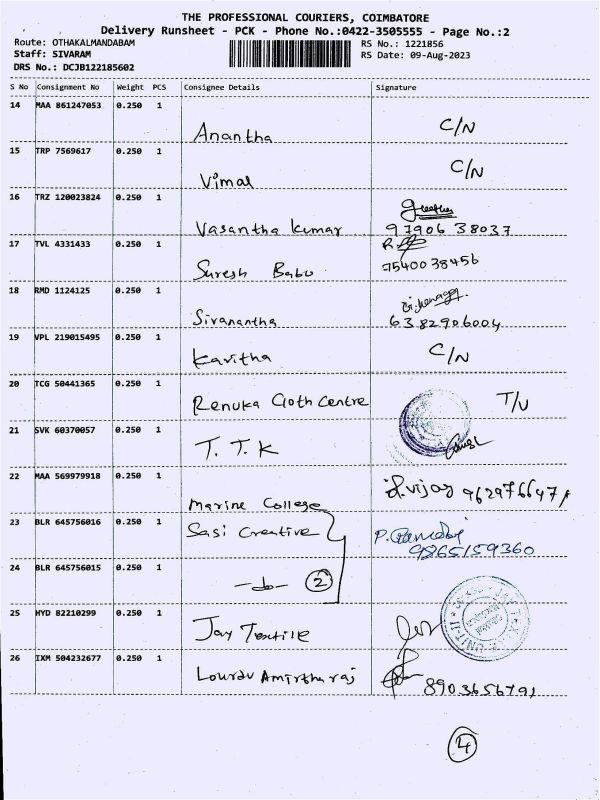 THE PROFESSIONAL COURIERS, COIMBATORE
Delivery Runsheet - PCK - Phone No.:0422-3505555 - Page No.:2
Route: OTHAKALMANDABAM
RS No.: 1221856
Staff: SIVARAM
RS Date: 09-Aug-2023
DRS No.: DCJB122185602
S No Consignment No Weight PCS Consignee Details Signature
14 MAA 861247053 0.250 1
Anantha C/N
15 TRP 7569617 0.250 1
Vimal C/N
16 TRZ 120023824 0.250 1
Vasantha Kumar 97906 38037
17 TVL 4331433 0.250 1
Suresh Babu 7540038456
18 RMD 1124125 0.250 1
Sivanantha 6382906004
19 VPL 219015495 0.250 1
Kavitha C/N
20 TCG 50441365 0.250 1
Renuka Cloth Centre T/N
21 SVK 60370057 0.250 1
T.T.K
22 MAA 569979918 0.250 1
Marine College vijay
23 BLR 645756016 0.250 1
Sasi Creative
9865159360
24 BLR 645756015 0.250 1
-do- 2
25 HYD 82210299 0.250 1
Jay Textile
UNIT-II
26 IXM 504232677 0.250 1
Lourdu Amirtharaj 8903656791
4